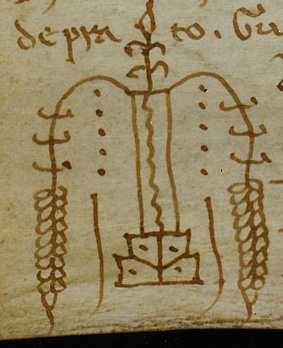 de pra to. Gu